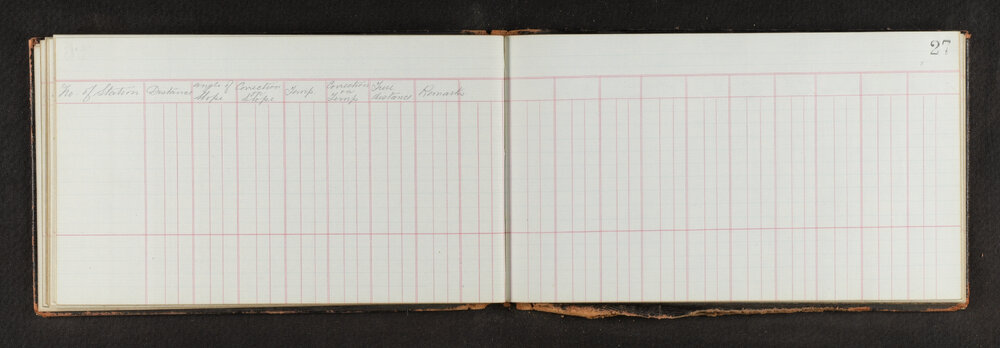 27
No of Station Distance Angle of Slope Correction Slope Temp. Correction on Temp True distance Remarks